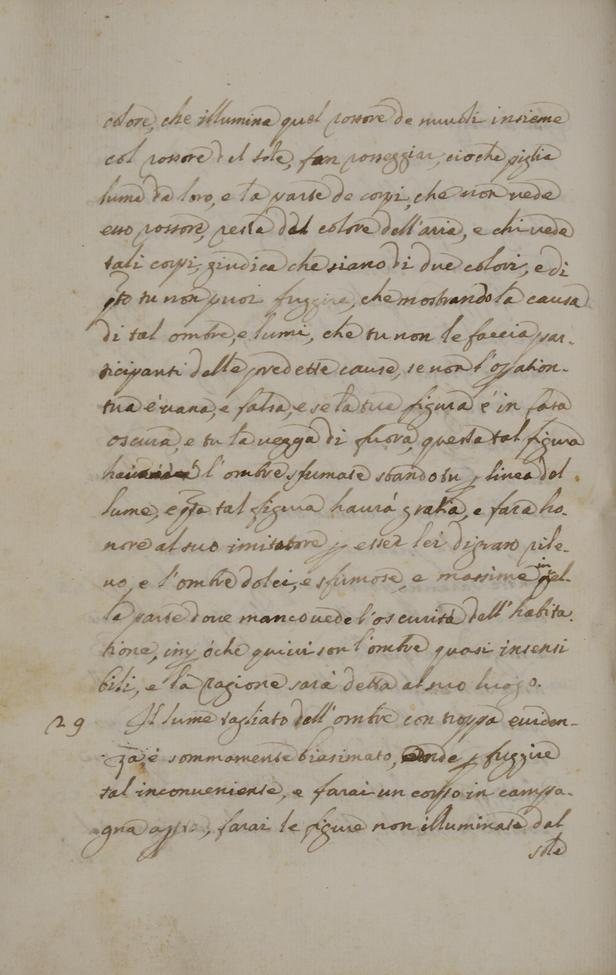 colore, che illumina quel rossore de nuuoli insieme
col rossore del sole, fan rosseggiar, cioche piglia
lume da loro, e la parte de corpi, che non uede
esso rossore, resta del colore dell'aria, e chi uede
tali corpi, giudica che siano di due colori, e di
qto tu non puoi fuggire, che mostrando la causa
di tal ombre, e lumi, che tu non le faccia par-
ticipanti delle predette cause, se non l'opation-
tua é uana, e falsa, e se la tua figura é in casa
oscura, e tu la uegga di fuora, questa tal figura
l'ombre sfumate stando tu p linea del
lume, e qta tal figura haurá gratia, e fara ho-
nore al suo imitatore p esser lei di gran rile-
uo, e l'ombre dolci, e sfumose, e massime in quel-
la parte doue manco uede l'oscuritá dell'habita-
tione, imp óche quiui son l'ombre quasi insensi
bili, e la ragione sará detta al suo luogo.
29 Il lume tagliato dall'ombre con troppa euiden-
za, é sommamente biasimato, onde p fuggire
tal inconueniente, e farai un corpo in campa-
gna apta, farai le figure non illuminate dal
sole